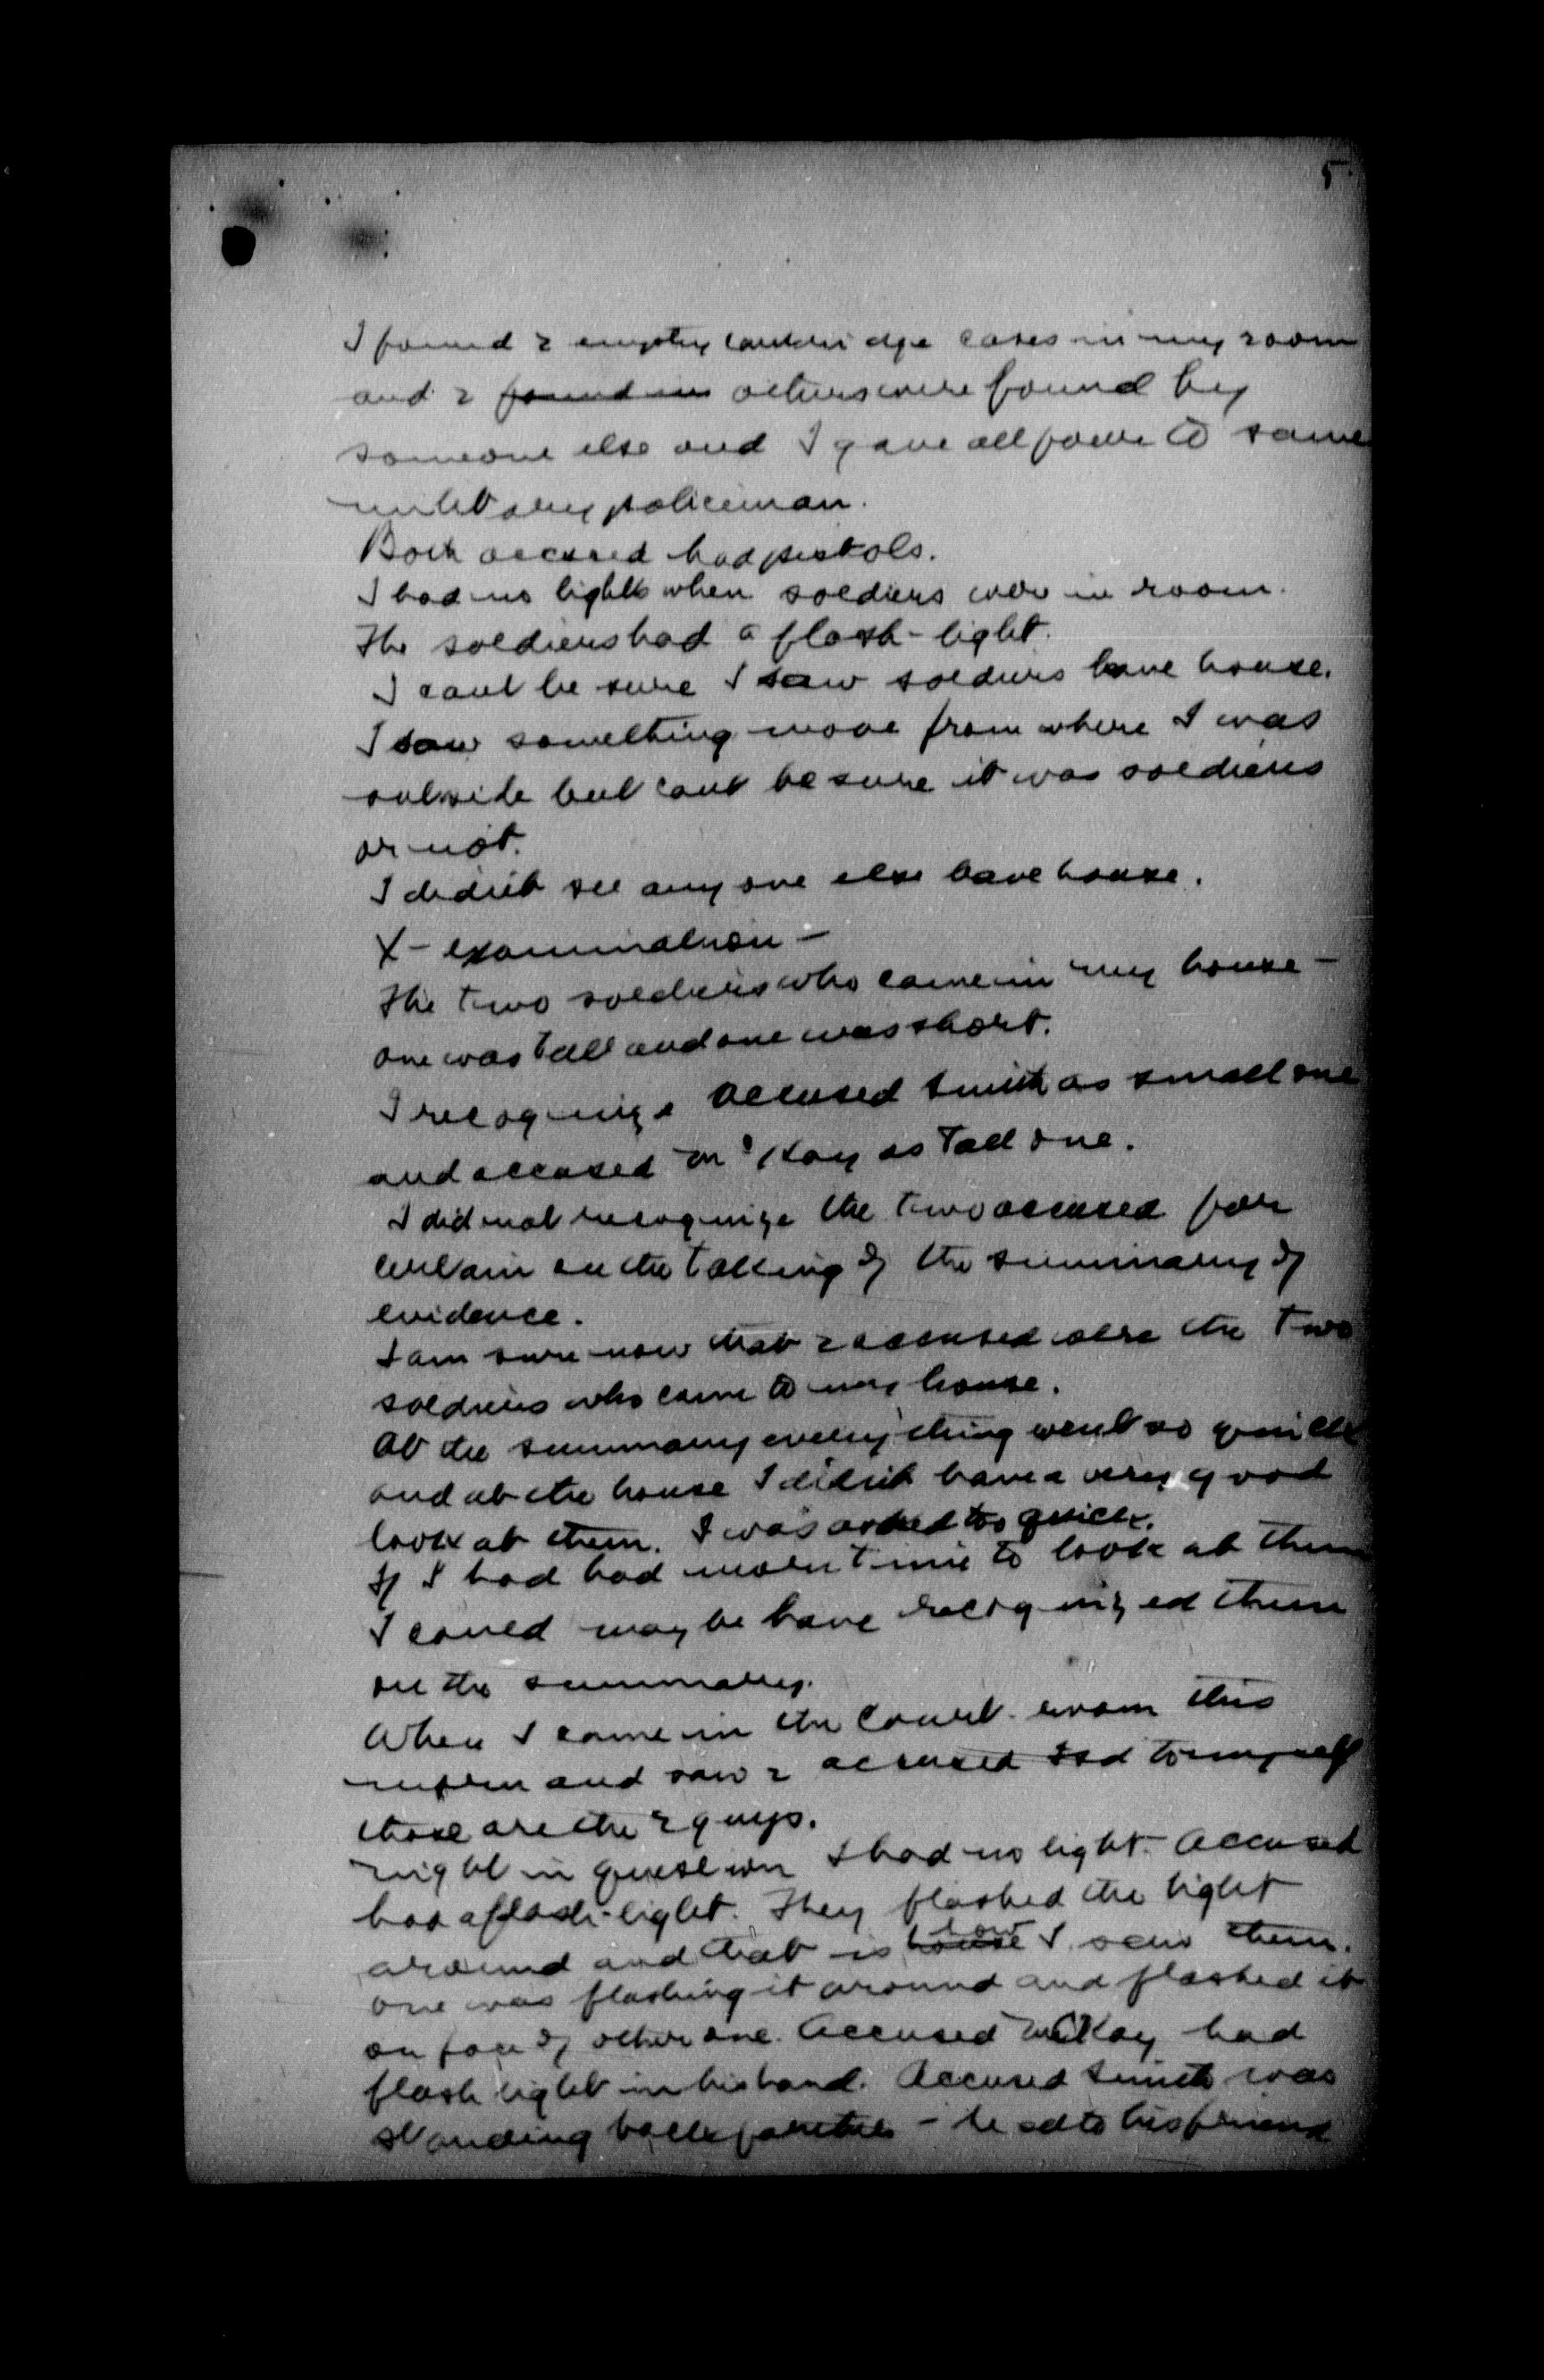 5
I found 2 empty cartridge cases in my room
and 2 found in others were found by
someone else and I gave all four to same
military policeman.
Both accused had pistols.
I had no lights when soldiers were in room.
The soldiers had a flash-light.
I cant be sure I saw soldiers leave house.
I saw something move from where I was
outside but cant be sure it was soldiers
or not.
I didn't see any one else leave house.
X-examination –
The two soldiers who came in my house –
one was tall and one was short.
I recognize accused Smith as small one
and accused McKay as Tall one.
I did not recognize the two accused for
certain on the taking of the summary of
evidence.
I am sure now that 2 accused were the two
soldiers who came to my house.
At the summary everything went so quick
and at the house I didn't have a very good
look at them. I was asked too quick.
If I had had more time to look at them
I could maybe have recognized them
on the summary.
When I came in the Court-room this
and saw 2 accused I sd to myself
those are the 2 guys.
night in question I had no light. Accused
had a flash-light. They flashed the light
around and that is house how I saw them.
one was flashing it around and flashed it
on face of other one. Accused McKay had
flash light in his hand. Accused Smith was
standing back – he sd to his friend